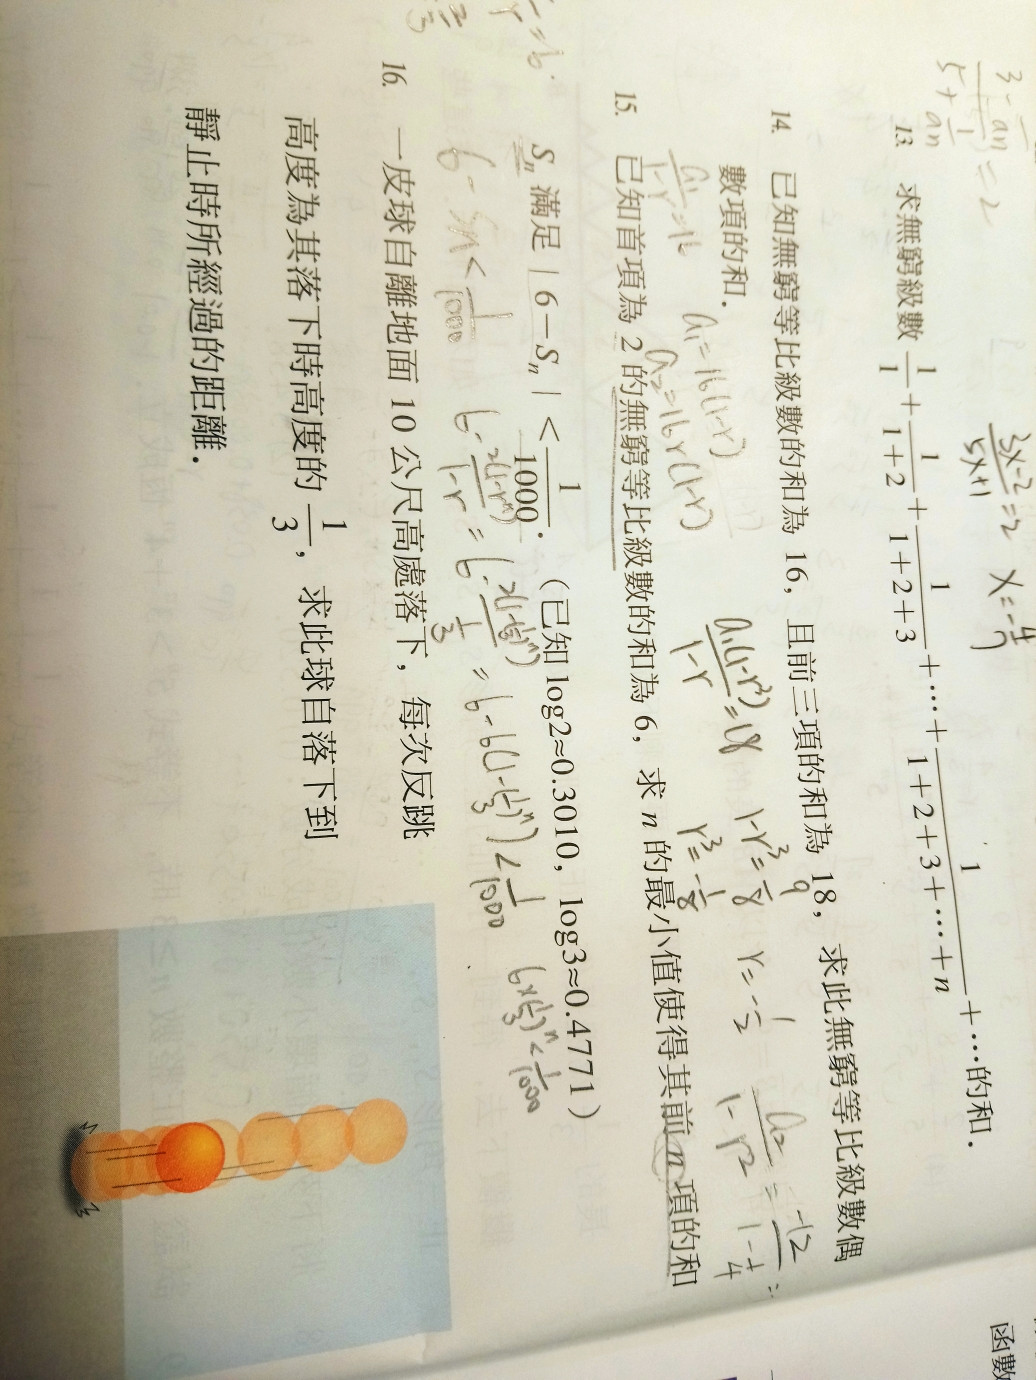 3-1/an / 5+1/an = 2
3x-2 / 5x+1 = 2 x=-4/7
13. 求無窮級數 1/1 + 1/1+2 + 1/1+2+3 + ⋯ + 1/1+2+3+⋯+n + ⋯的和.
14. 已知無窮等比級數的和為 16，且前三項的和為 18，求此無窮等比級數偶
數項的和.
a₁/1-r = 16 a₁=16(1-r) a₁(1-r³)/1-r = 18 1-r³ = 9/8 r = -1/2 a₂/1-r² = -12/1-1/4 =
a₂=16r(1-r) r³ = -1/8
15. 已知首項為 2 的無窮等比級數的和為 6，求 n 的最小值使得其前 n 項的和
Sₙ 滿足 | 6-Sₙ | < 1/1000.（已知 log2≈0.3010，log3≈0.4771）
6-Sn < 1/1000 6-2(1-rⁿ)/1-r = 6-2(1-(2/3)ⁿ)/1/3 = 6-6(1-(2/3)ⁿ) < 1/1000 6×(2/3)ⁿ < 1/1000
16. 一皮球自離地面 10 公尺高處落下，每次反跳
高度為其落下時高度的 1/3，求此球自落下到
靜止時所經過的距離.
函數